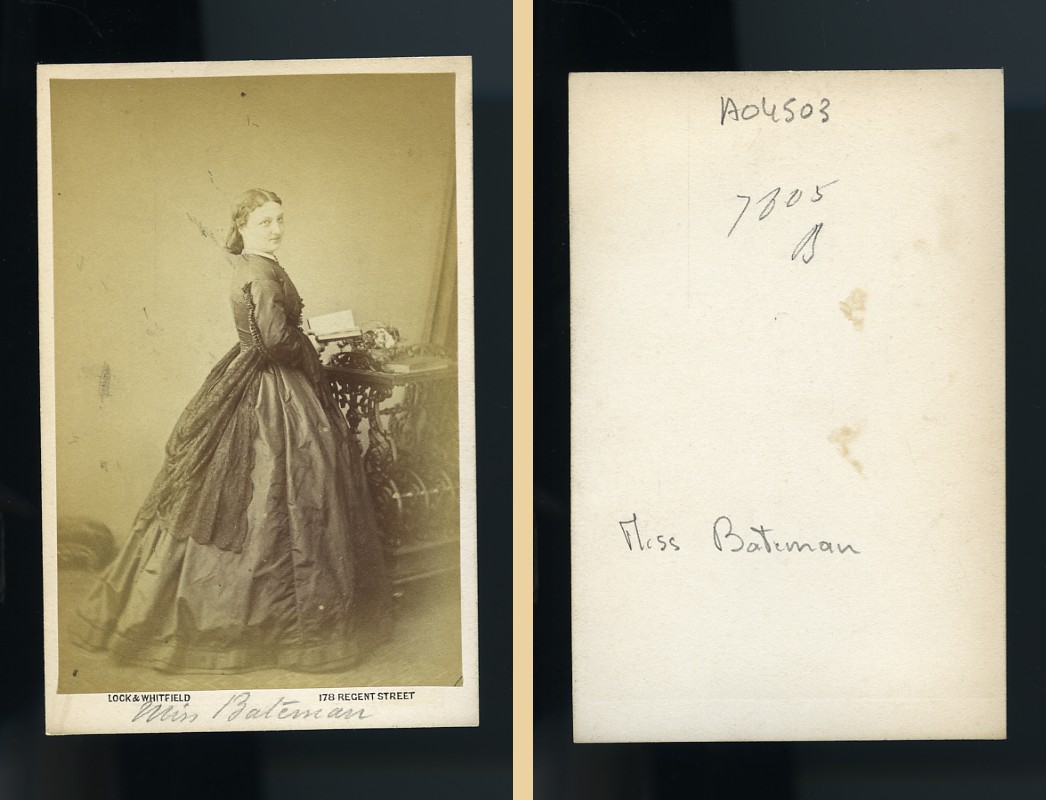 LOCK & WHITFIELD 178 REGENT STREET
Miss Bateman
A04503
7805
B
Miss Bateman